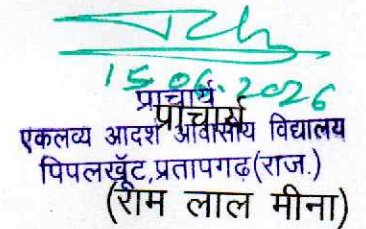 15.06.2026
प्राचार्य
प्राचार्य
एकलव्य आदर्श आवासीय विद्यालय
पिपलखूँट,प्रतापगढ़(राज.)
(राम लाल मीना)